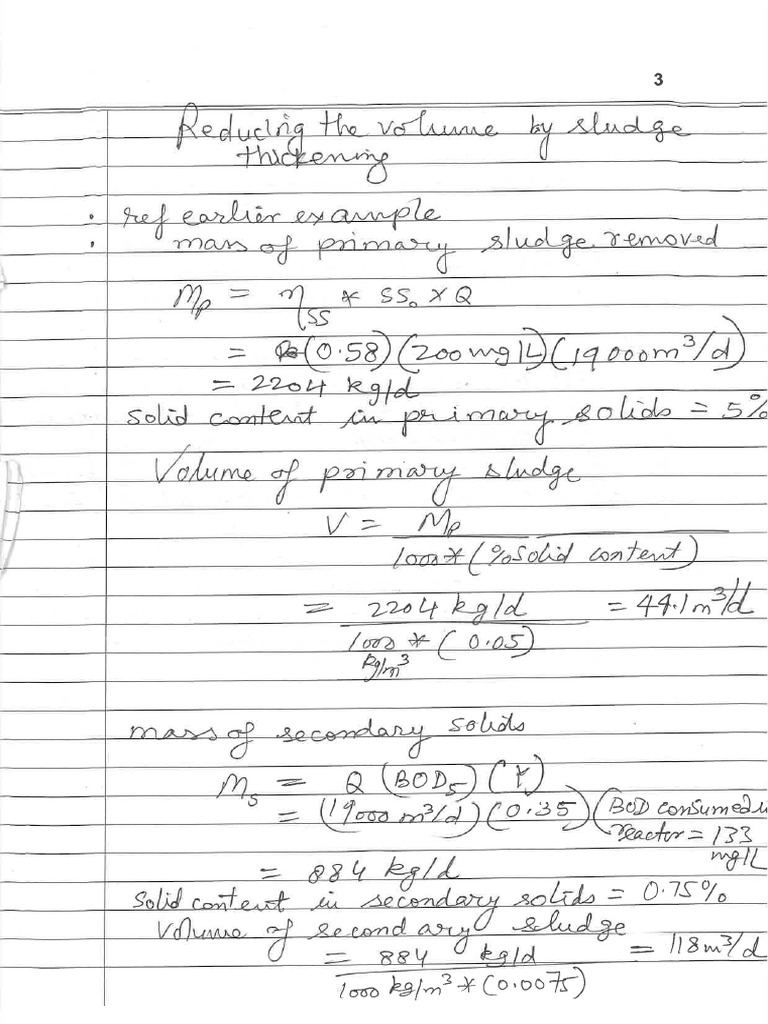 3
Reducing the volume by sludge
thickening
. ref earlier example
. mass of primary sludge removed
Mp = ηSS * SS₀ × Q
= (0.58)(200mg/L)(19000m³/d)
= 2204 kg/d
solid content in primary solids = 5%
Volume of primary sludge
V = Mp
1000*(%solid content)
= 2204 kg/d = 44.1m³/d
1000 * (0.05)
kg/m³
mass of secondary solids
Ms = Q (BOD₅)(Y)
= (19000 m³/d)(0.35)(BOD consumed in
reactor = 133
mg/L
= 884 kg/d
Solid content in secondary solids = 0.75%
Volume of secondary sludge
= 884 kg/d = 118m³/d
1000 kg/m³*(0.0075)